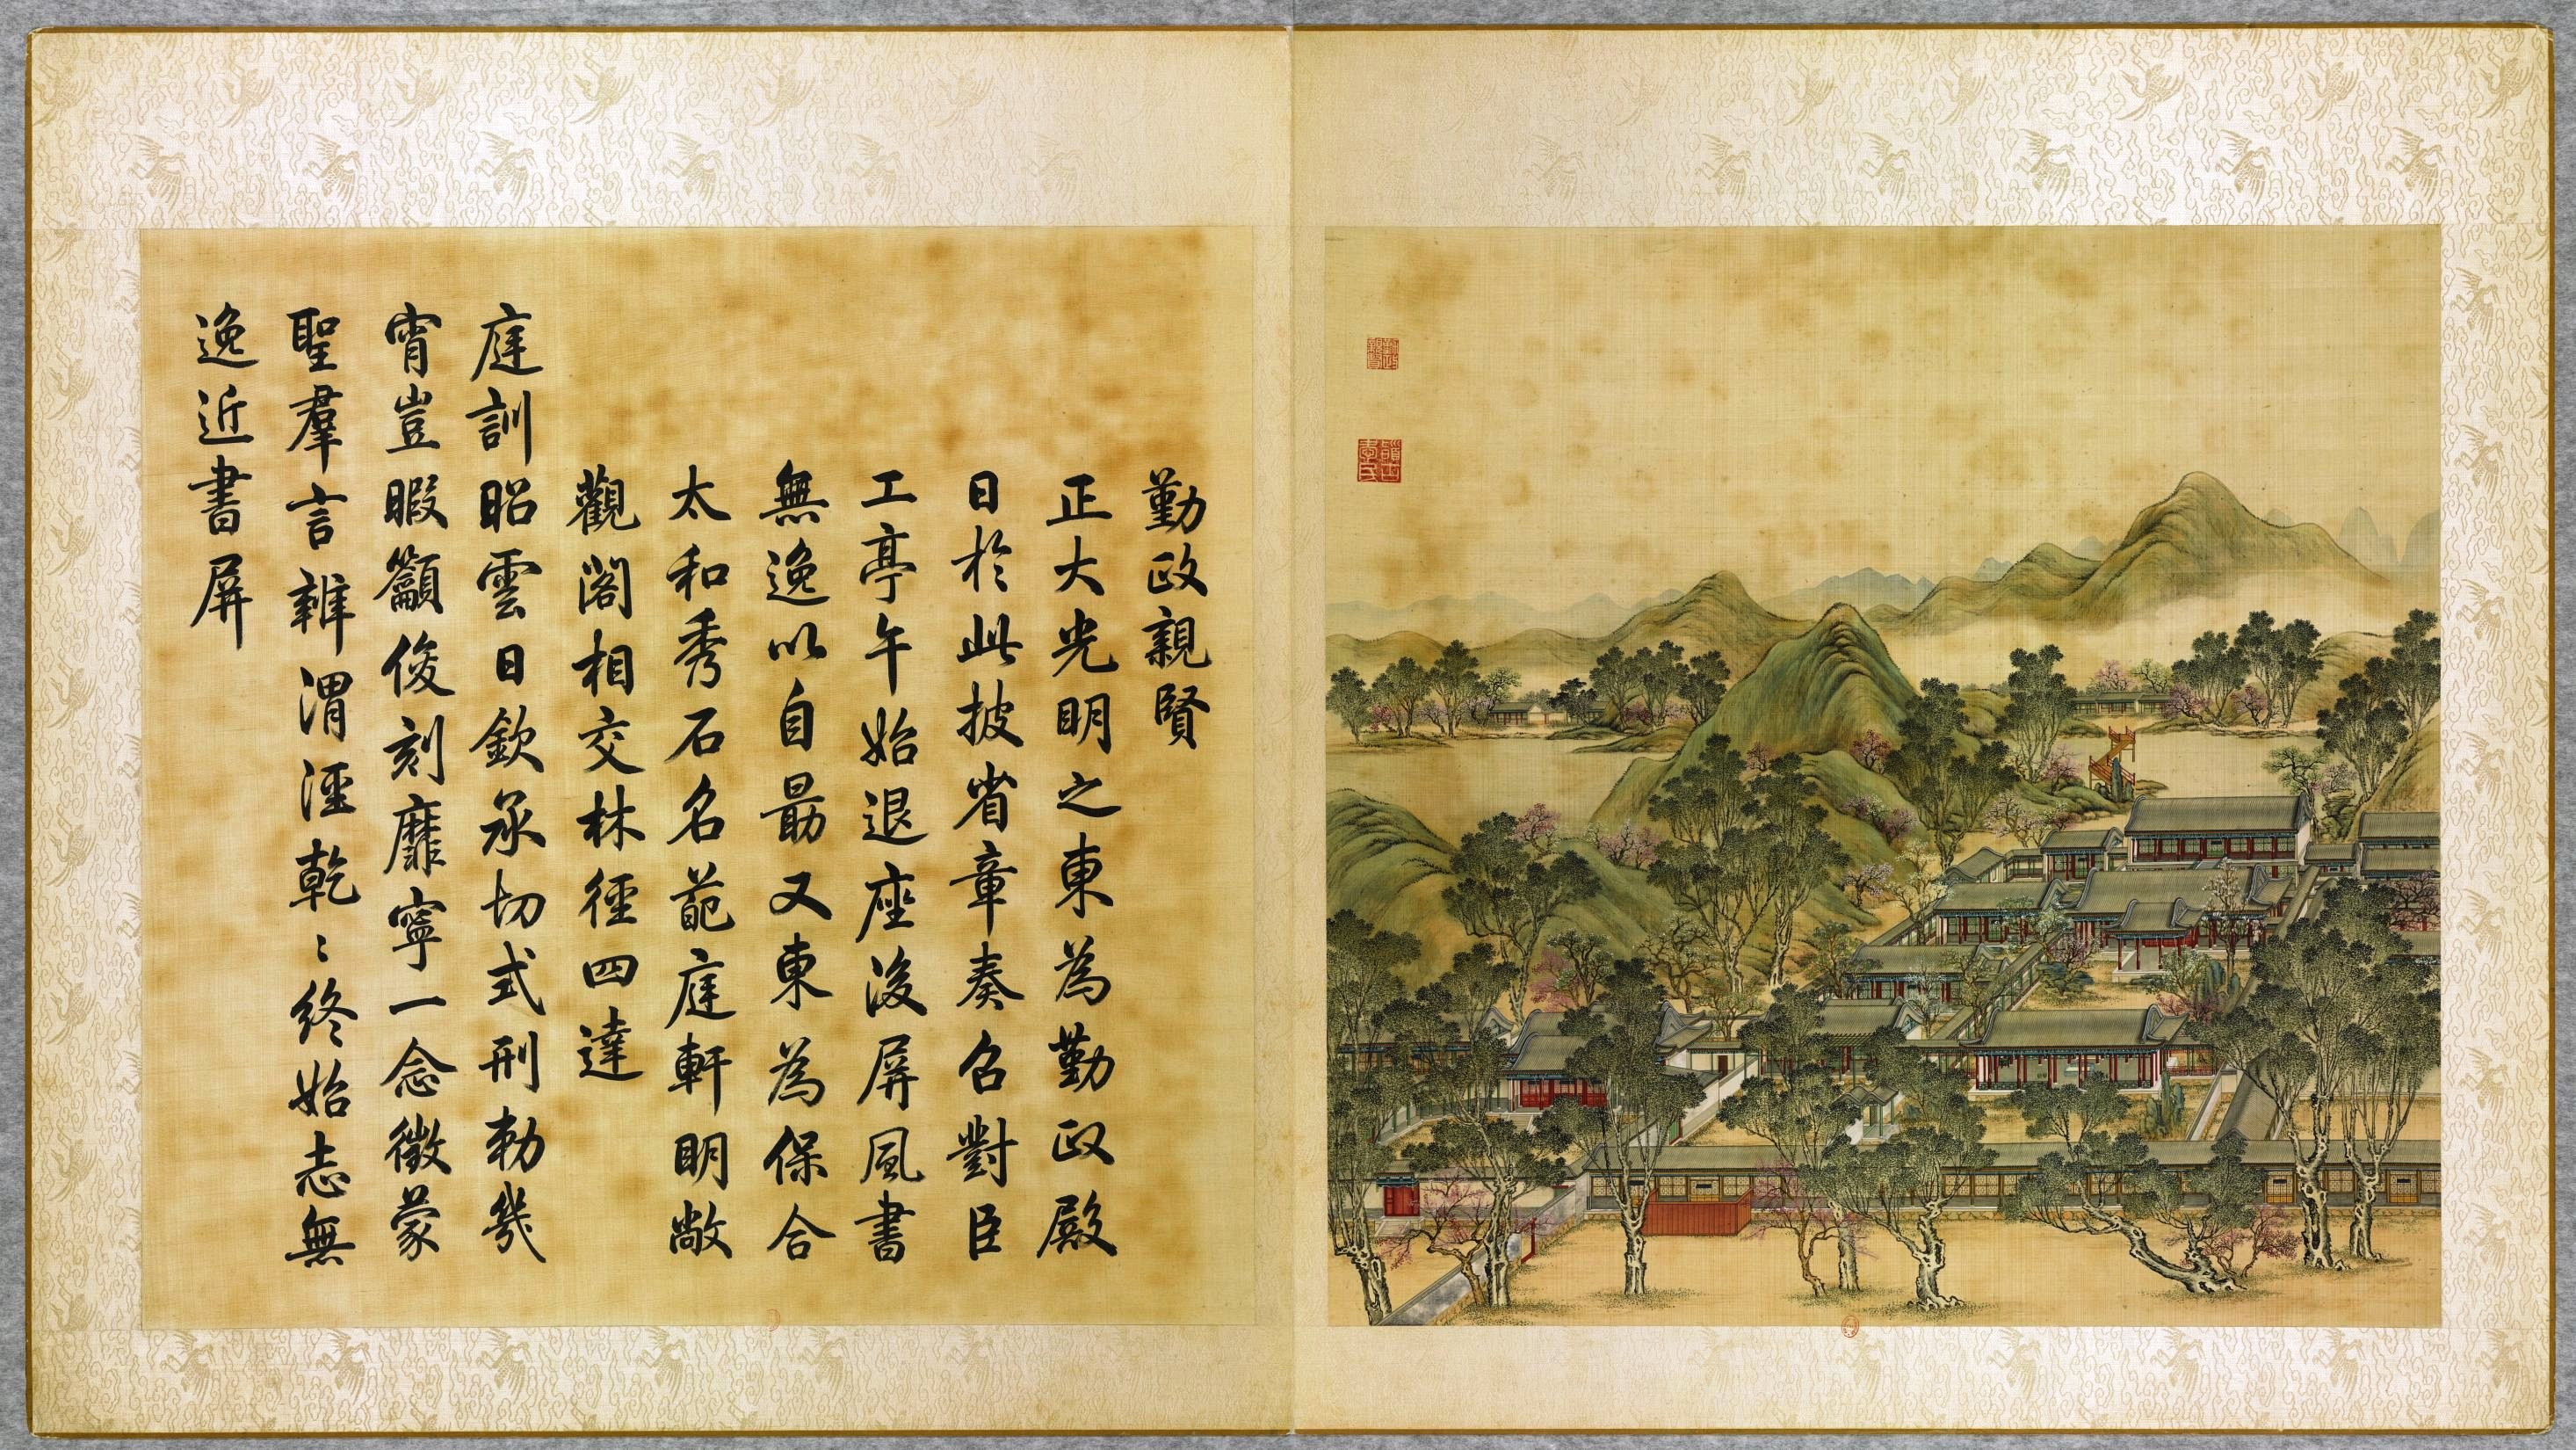 勤政親賢
正大光明之東為勤政殿
日於此披省章奏召對臣
工亭午始退座後屏風書
無逸以自勗又東為保合
太和秀石名葩庭軒明敞
觀閣相交林徑四達
庭訓昭雲日欽承切式刑勅幾
宵豈暇籲俊刻靡寧一念徵蒙
聖羣言雜渭涇乾〻終始志無
逸近書屏